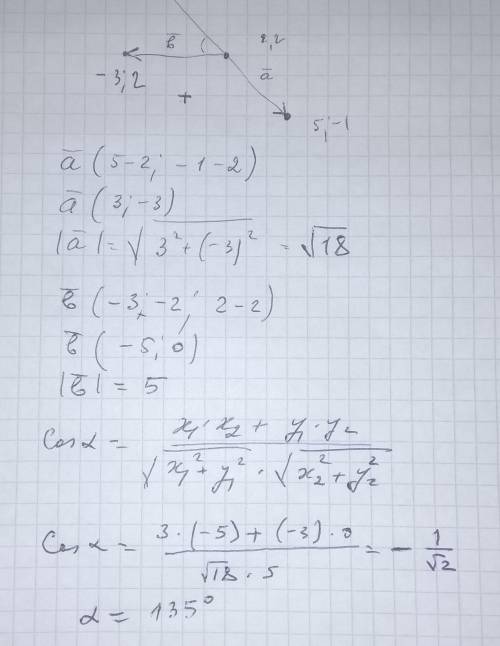 b̄
2,2
ā
-3; 2
+
5; -1
ā (5-2; -1-2)
ā (3; -3)
|ā| = √(3² + (-3)²) = √18
b̄ (-3; -2; 2-2)
b̄ (-5; 0)
|b̄| = 5
Cos α = (x₁·x₂ + y₁·y₂) / (√(x₁² + y₁²) · √(x₂² + y₂²))
Cos α = (3·(-5) + (-3)·0) / (√18 · 5) = - 1/√2
α = 135°